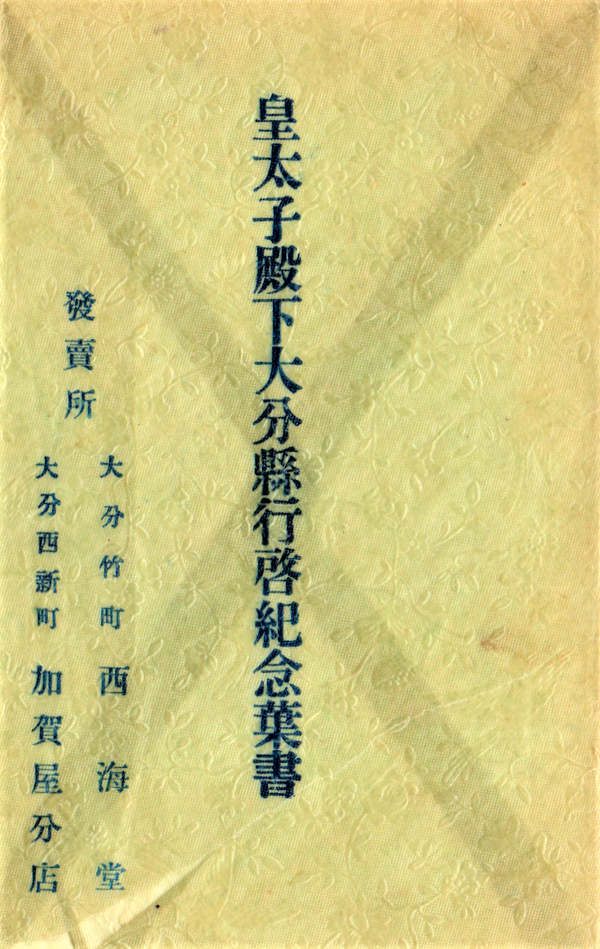 皇太子殿下大分縣行啓紀念葉書
發賣所
大分竹町 西海堂
大分西新町 加賀屋分店